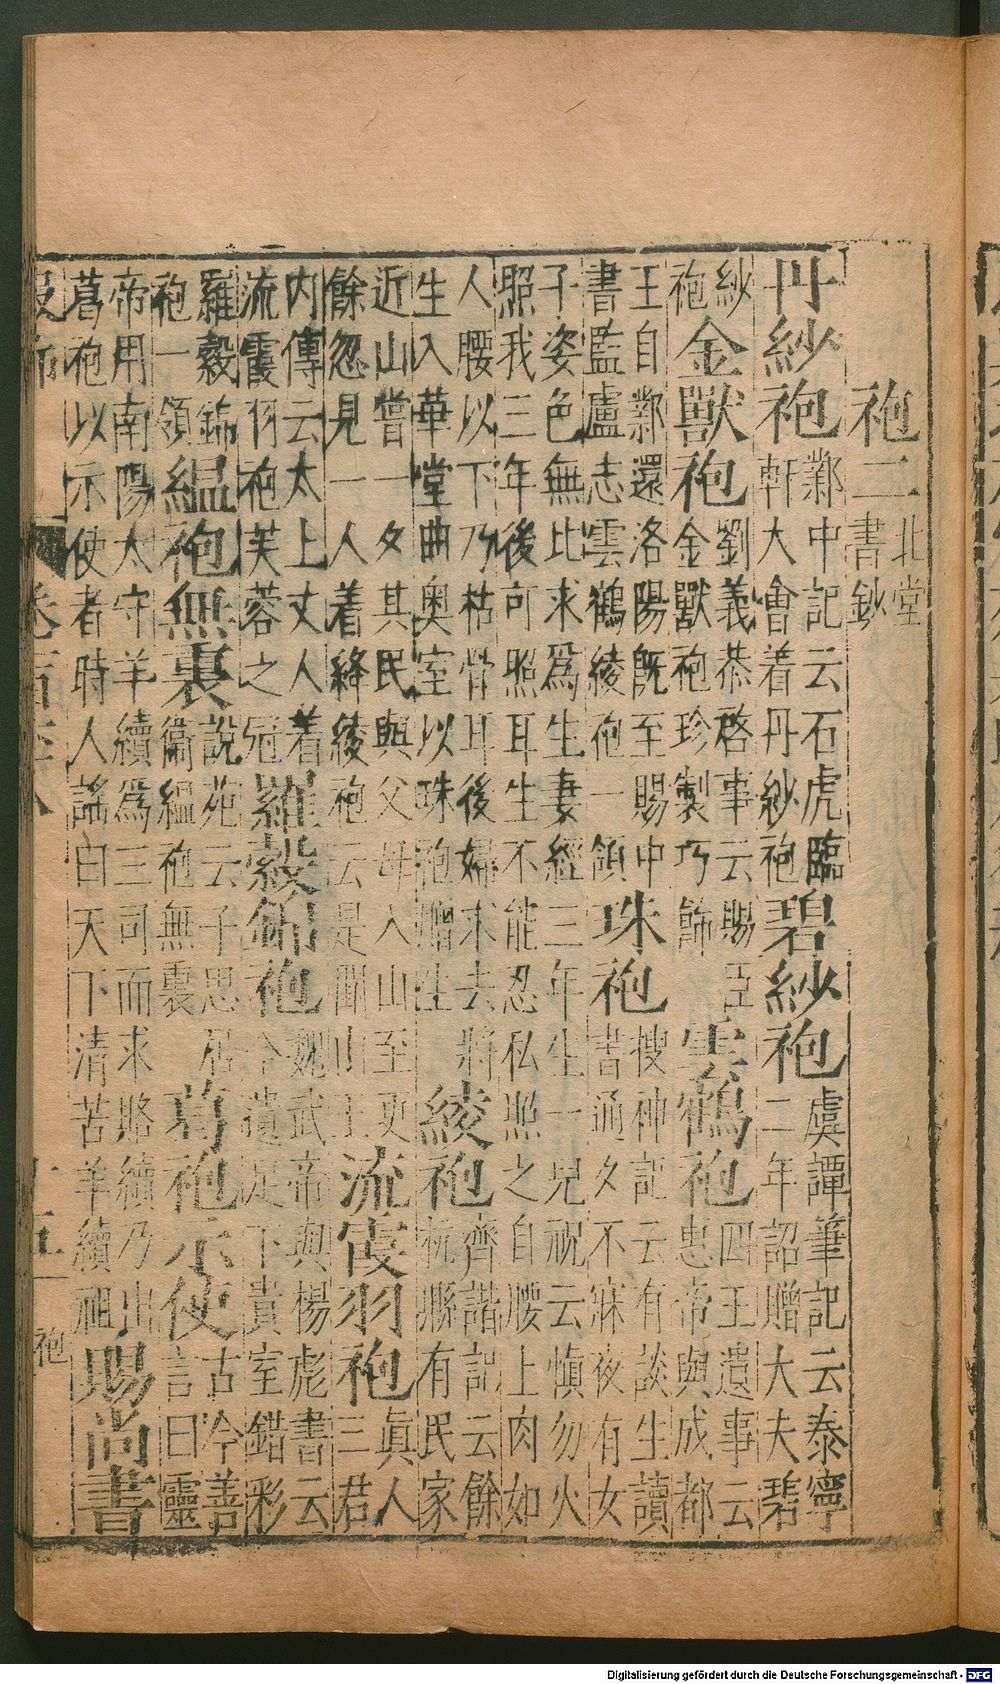 袍二
北堂
書鈔
丹紗袍
鄴中記云石虎臨
軒大會着丹紗袍
碧紗袍
虞譚筆記云泰寧
二年詔贈大夫碧
紗
袍
金獸袍
劉義恭啓事云賜臣
金獸袍珍製巧飾
雲鶴袍
四王遺事云
惠帝與成都
王自鄴還洛陽既至賜中
書監盧志雲鶴綾袍一領
珠袍
搜神記云有談生讀
書通夕不寐夜有女
子姿色無比求爲生妻經三年生一兒祝云慎勿火
照我三年後可照耳生不能忍私照之自腰上肉如
人腰以下乃枯骨耳後婦求去將
生入華堂曲奥室以珠袍贈生
綾袍
齊諧記云餘
杭縣有民家
近山嘗一夕其民與父母入山至更
餘忽見一人着絳綾袍云是鬭山王
流霞羽袍
眞人
三君
内傳云太上丈人着
流霞羽袍芙蓉之冠
羅縠錦袍
魏武帝與楊彪書云
今遺足下貴室錯彩
羅縠錦
袍一領
緼袍無裏
說苑云子思居
衞緼袍無裏
葛袍示使
古今善
言曰靈
帝用南陽太守羊續爲三司而求賂續乃出
葛袍以示使者時人謠曰天下清苦羊續祖
賜尚書
袍
Digitalisierung gefördert durch die Deutsche Forschungsgemeinschaft - DFG